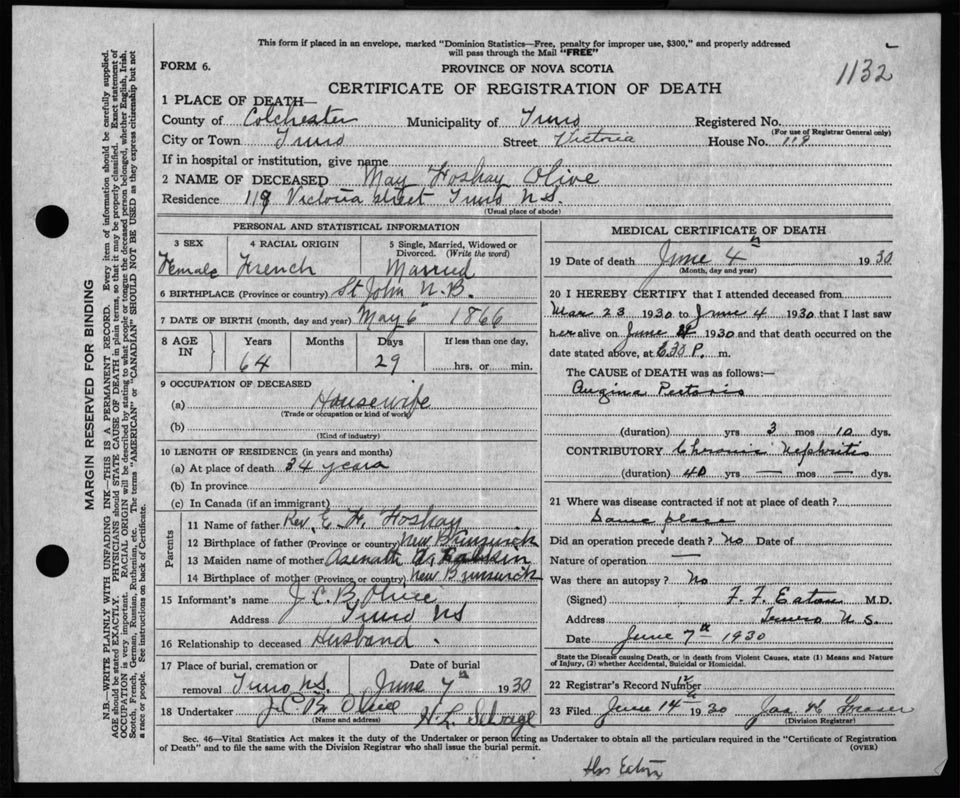 This form if placed in an envelope, marked "Dominion Statistics—Free, penalty for improper use, $300," and properly addressed
will pass through the Mail "FREE"
1132
FORM 6.
PROVINCE OF NOVA SCOTIA
CERTIFICATE OF REGISTRATION OF DEATH
1 PLACE OF DEATH—
County of Colchester Municipality of Truro Registered No.
(For use of Registrar General only)
City or Town Truro Street Victoria House No. 119
If in hospital or institution, give name
2 NAME OF DECEASED May Foshay Olive
Residence 119 Victoria street Truro N.S.
(Usual place of abode)
PERSONAL AND STATISTICAL INFORMATION
3 SEX 4 RACIAL ORIGIN 5 Single, Married, Widowed or
Divorced. (Write the word)
Female French Married
6 BIRTHPLACE (Province or country) St John N.B.
7 DATE OF BIRTH (month, day and year) May 6 1866
8 AGE IN Years Months Days If less than one day,
64 29 hrs. or min.
9 OCCUPATION OF DECEASED
(a) Housewife
(Trade or occupation or kind of work)
(b)
(Kind of industry)
10 LENGTH OF RESIDENCE (in years and months)
(a) At place of death 34 years
(b) In province
(c) In Canada (if an immigrant)
Parents
11 Name of father Rev. E. H. Foshay
12 Birthplace of father (Province or country) New Brunswick
13 Maiden name of mother
14 Birthplace of mother (Province or country) New Brunswick
15 Informant's name J.C.B. Olive
Address Truro NS
16 Relationship to deceased Husband.
17 Place of burial, cremation or Date of burial
removal Truro N.S. June 7th 1930
18 Undertaker J.C.B. Olive
(Name and address) H.L. Selvage
MEDICAL CERTIFICATE OF DEATH
19 Date of death June 4th 1930
(Month, day and year)
20 I HEREBY CERTIFY that I attended deceased from
Mar 23 1930 to June 4 1930 that I last saw
her alive on June 4 1930 and that death occurred on the
date stated above, at 6.30 P. m.
The CAUSE of DEATH was as follows:—
Angina Pectoris
(duration) yrs 3 mos 10 dys.
CONTRIBUTORY Chronic Nephritis
(duration) 40 yrs — mos — dys.
21 Where was disease contracted if not at place of death?
Same place
Did an operation precede death? No Date of
Nature of operation —
Was there an autopsy? No
(Signed) F. F. Eaton M.D.
Address Truro N.S.
Date June 7th 1930
State the Disease causing Death, or in death from Violent Causes, state (1) Means and Nature
of Injury, (2) whether Accidental, Suicidal or Homicidal.
22 Registrar's Record Number
23 Filed June 14th 1930 Jas. H. Fraser
(Division Registrar)
Sec. 46—Vital Statistics Act makes it the duty of the Undertaker or person acting as Undertaker to obtain all the particulars required in the "Certificate of Registration
of Death" and to file the same with the Division Registrar who shall issue the burial permit. (OVER)
Eaton
MARGIN RESERVED FOR BINDING
N.B.—WRITE PLAINLY WITH UNFADING INK—THIS IS A PERMANENT RECORD. Every item of information should be carefully supplied.
AGE should be stated EXACTLY. PHYSICIANS should STATE CAUSE OF DEATH in plain terms, so that it may be properly classified. Exact statement of
OCCUPATION is very important. RACIAL ORIGIN will be described by stating to what people or tongue the deceased person belonged, whether English, Irish,
Scotch, French, German, Russian, Ruthenian, etc. The terms "AMERICAN" or "CANADIAN" SHOULD NOT BE USED as they express citizenship but not
a race or people. See instructions on back of Certificate.